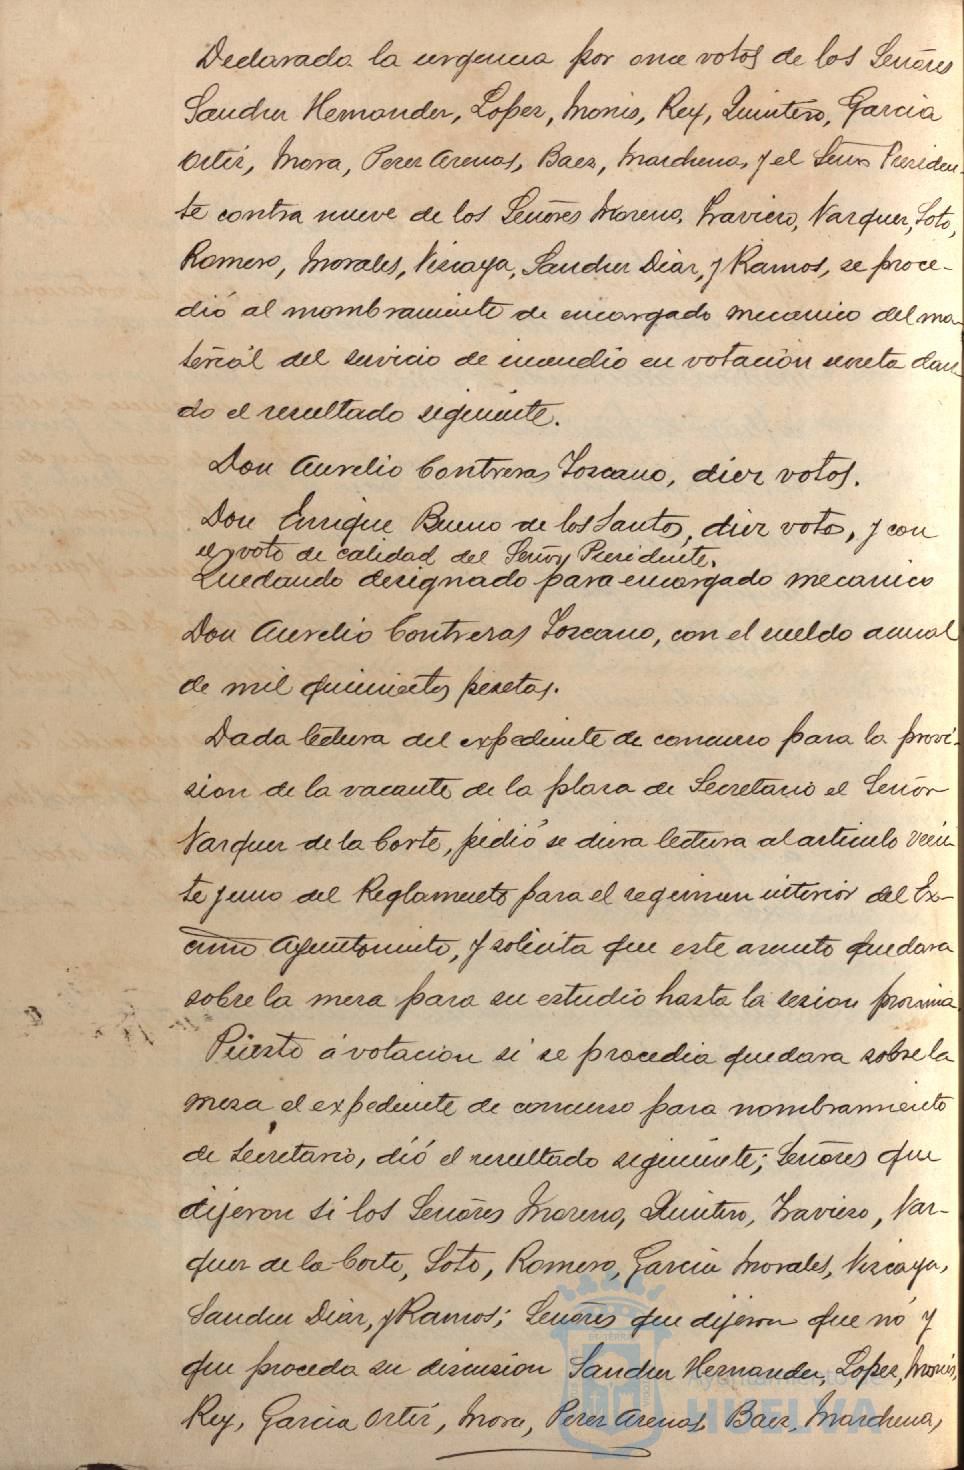 Declarada la urgencia por once votos de los Señores
Sanchez Hernandez, Lopez, Monis, Rey, Quintero, Garcia
Ortiz, Mora, Perez Arenas, Baez, Marchena, y el Señor Presiden-
te contra nueve de los Señores Moreno, Travieso, Vazquez, Soto,
Romero, Morales, Vizcaya, Sanchez Diaz, y Ramos, se proce-
dió al nombramiento de encargado mecanico del ma-
terial del servicio de incendio en votación secreta dan-
do el resultado siguiente.
Don Aurelio Contreras Toscano, diez votos.
Don Enrique Bueno de los Santos, diez votos, y con
el voto de calidad del Señor Presidente.
Quedando designado para encargado mecanico
Don Aurelio Contreras Toscano, con el sueldo anual
de mil quinientos pesetas.
Dada lectura del expediente de concurso para la provi-
sion de la vacante de la plaza de Secretario el Señor
Vazquez de la Corte, pidió se diera lectura al articulo vein-
te y uno del Reglamento para el regimen interior del Ex-
cmo Ayuntamiento, y solicita que este asunto quedara
sobre la mesa para su estudio hasta la sesion proxima
Puesto á votacion si se procedia quedara sobre la
mesa el expediente de concurso para nombramiento
de Secretario, dió el resultado siguiente; Señores que
dijeron si los Señores Moreno, Quintero, Travieso, Vaz-
quez de la Corte, Soto, Romero, Garcia Morales, Vizcaya,
Sanchez Diaz, y Ramos; Señores que dijeron que nó y
que proceda su discusion Sanchez Hernandez, Lopez, Monis,
Rey, Garcia Ortiz, Mora, Perez Arenas, Baez, Marchena,
Ayuntamiento de
HUELVA